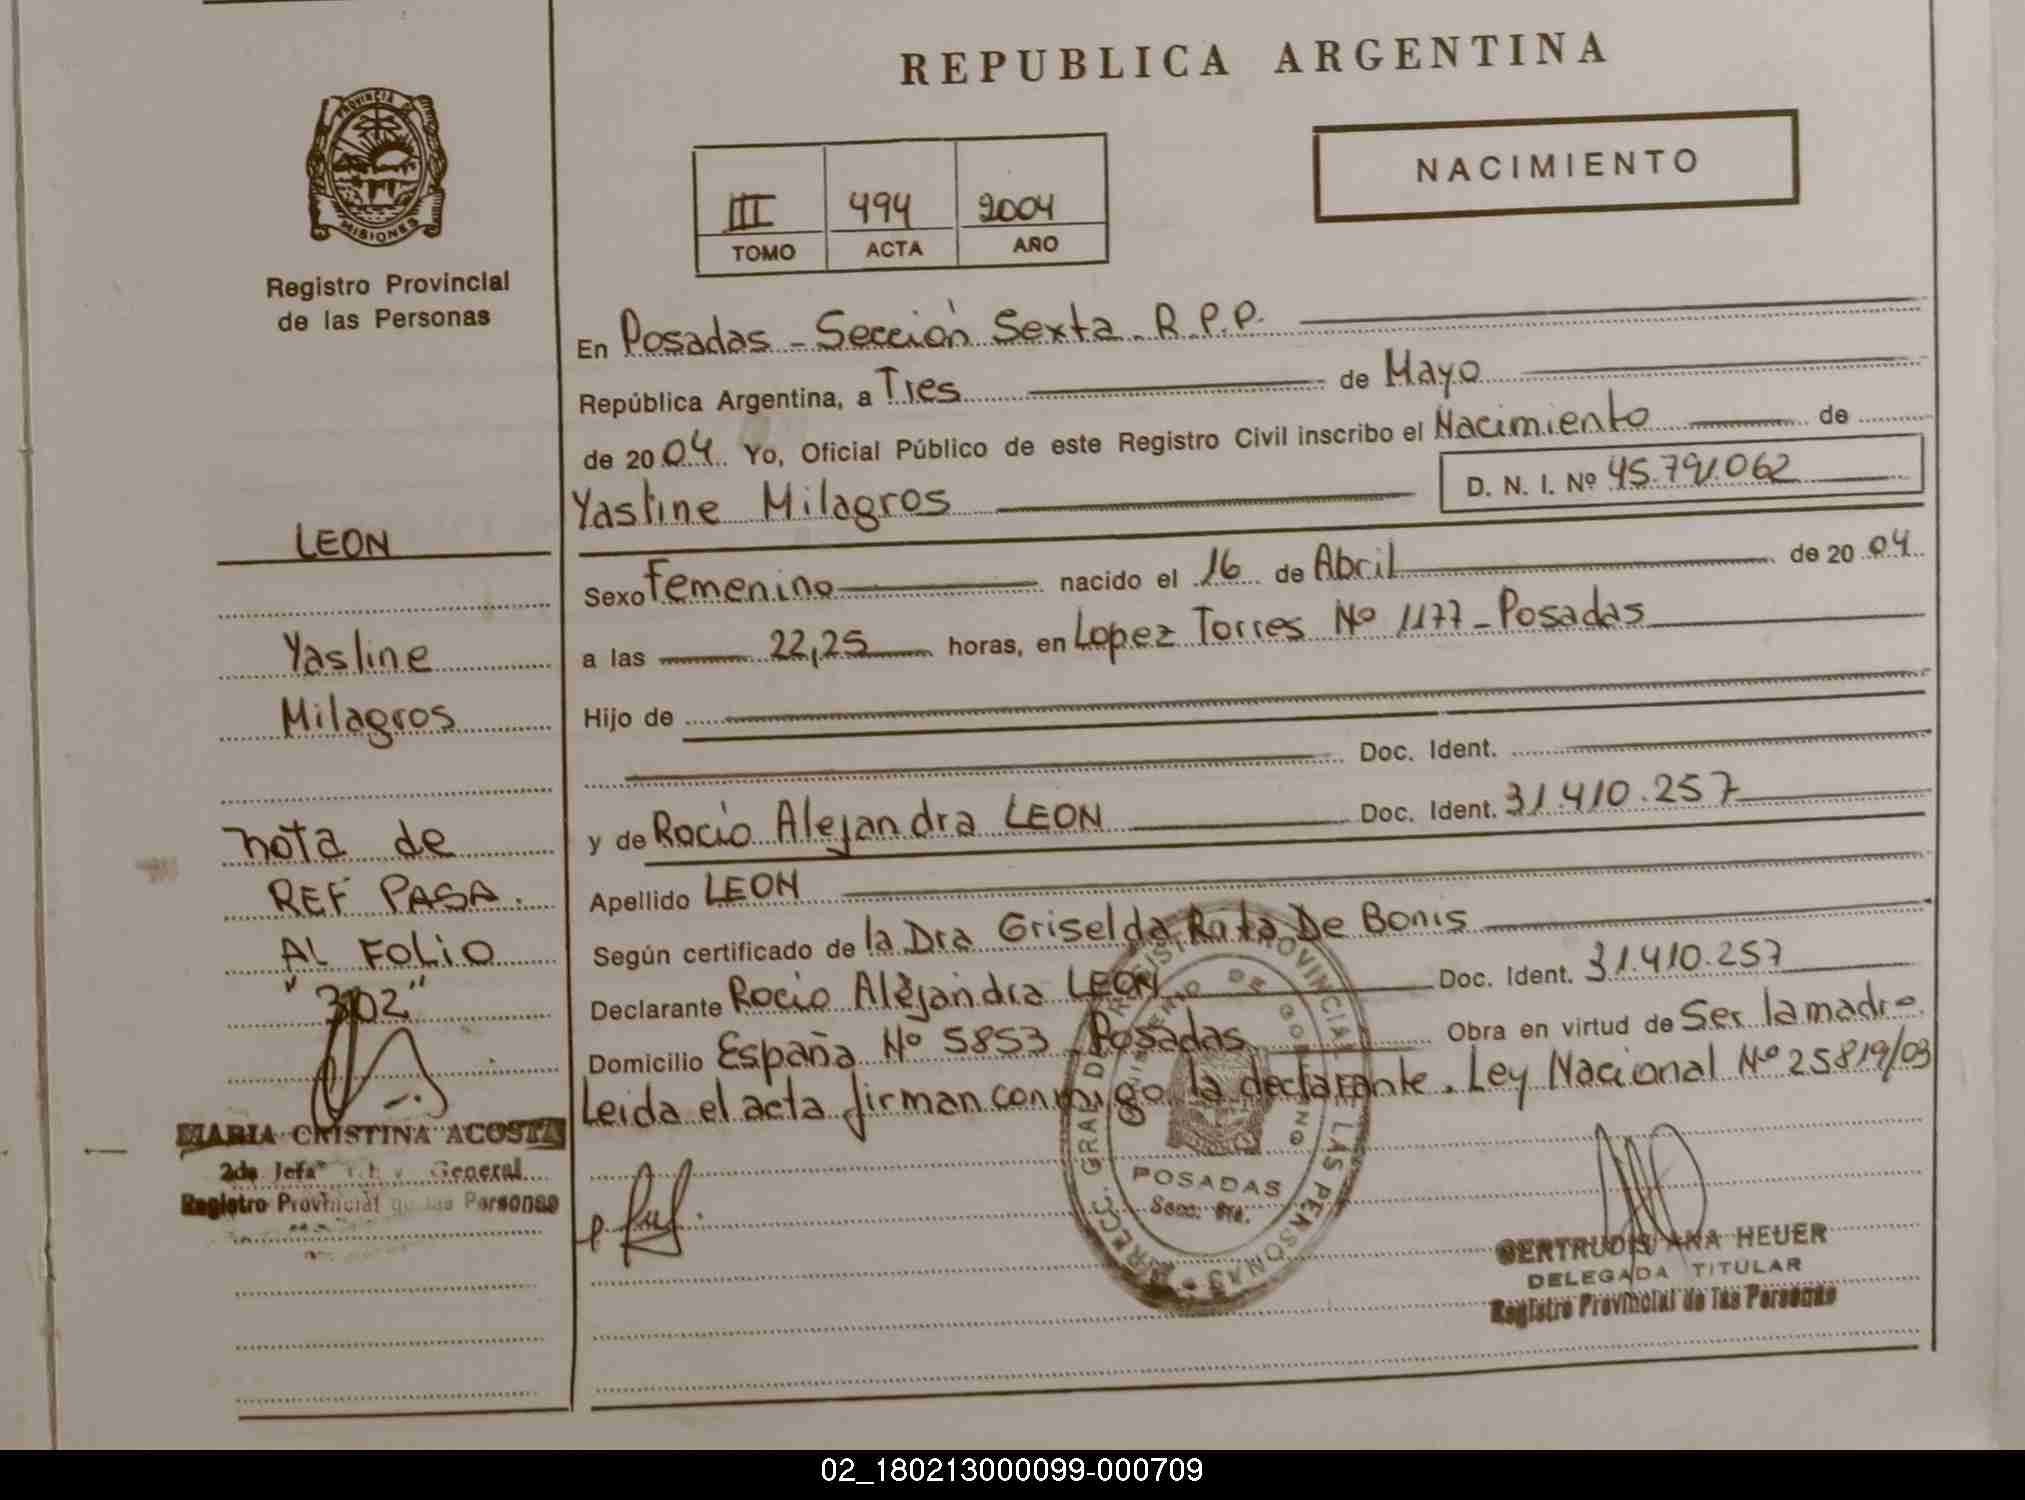 REPUBLICA ARGENTINA
PROVINCIA DE
MISIONES
Registro Provincial
de las Personas
NACIMIENTO
III 494 2004
TOMO ACTA AÑO
En Posadas - Sección Sexta. R.P.P.
República Argentina, a Tres de Mayo
de 2004. Yo, Oficial Público de este Registro Civil inscribo el Nacimiento de
Yasline Milagros
D. N. I. Nº 45.791.062
Sexo Femenino nacido el 16 de Abril de 2004
a las 22,25 horas, en Lopez Torres Nº 1177 - Posadas
Hijo de
Doc. Ident.
y de Rocio Alejandra LEON Doc. Ident. 31.410.257
Apellido LEON
Según certificado de la Dra Griselda De Bonis
Declarante Rocio Alejandra LEON Doc. Ident. 31.410.257
Domicilio España Nº 5853 - Posadas Obra en virtud de Ser la madre.
Leida el acta firman conmigo la declarante. Ley Nacional Nº 25819/03
LEON
Yasline
Milagros
nota de
REF PASA.
AL FOLIO
"302"
MARIA CRISTINA ACOSTA
2da Jefa General
Registro Provincial de las Personas
DIRECC. GRAL DE REGISTRO PROVINCIAL DE LAS PERSONAS
MINISTERIO DE GOBIERNO
POSADAS
Secc. 6ta.
GERTRUDIS ANA HEUER
DELEGADA TITULAR
Registro Provincial de las Personas
02_180213000099-000709